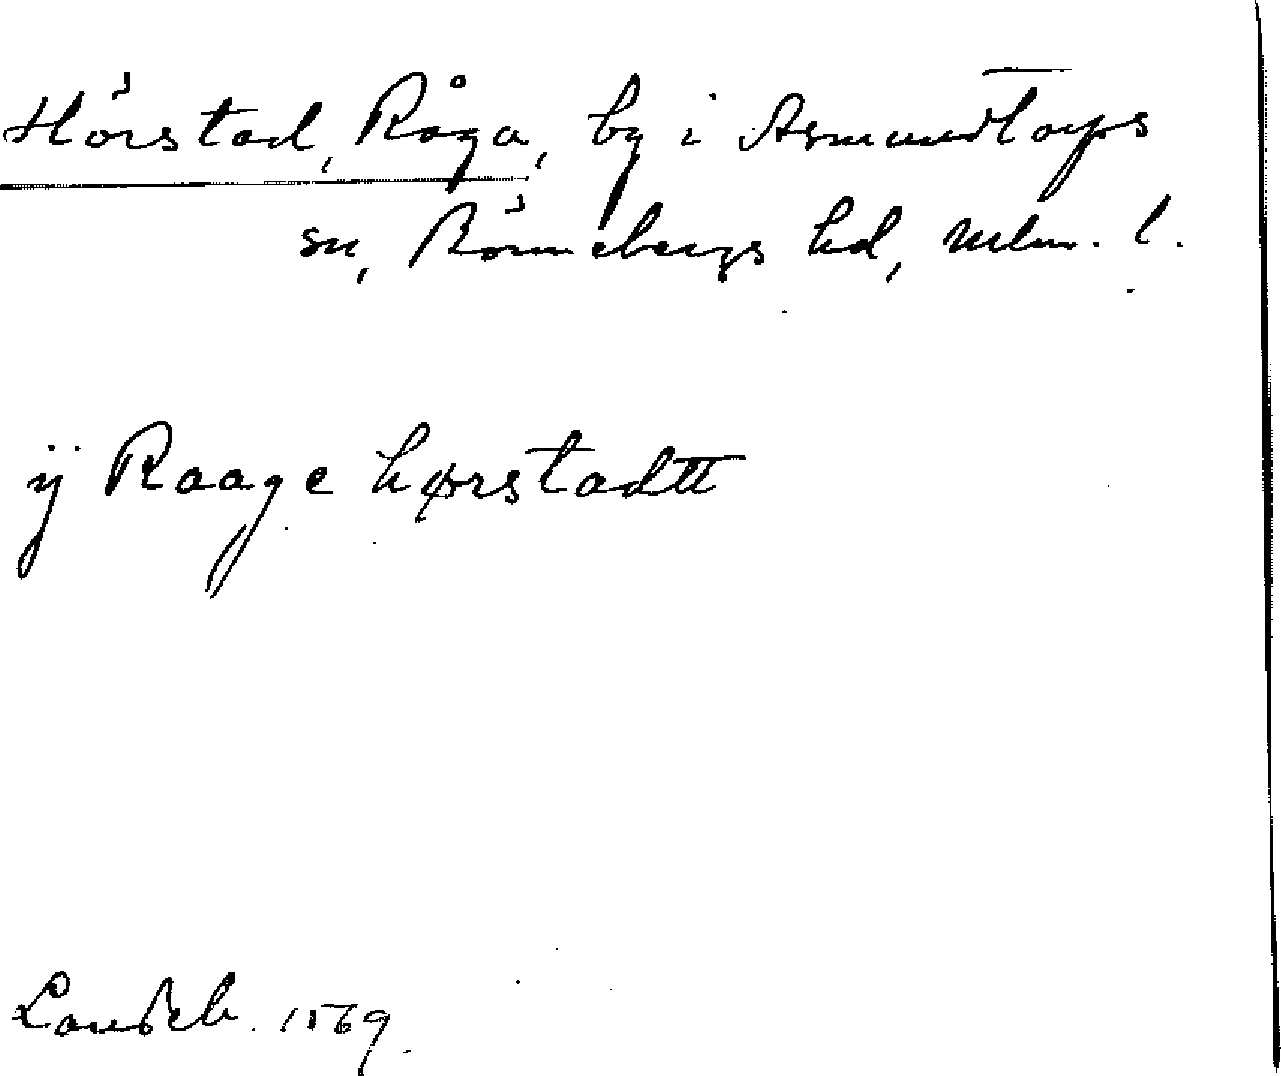 Hörstad, Råga, by i Asmundtorps
sn, Rönnebergs hd, Mlm. l.
ij Raage hørstadtt
Landeb. 1569